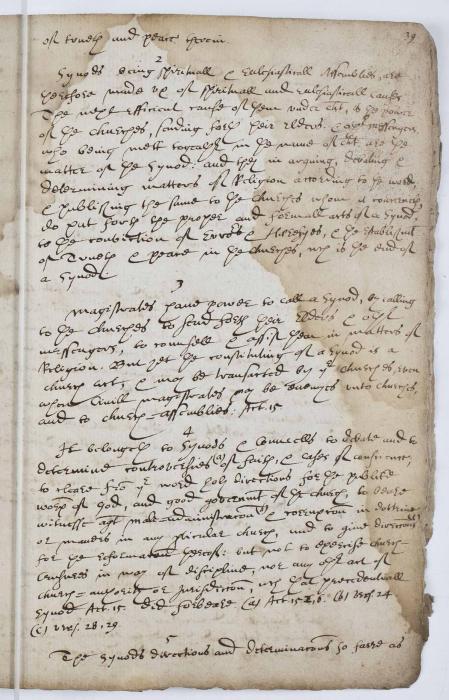 39
of trueth and peace therein.
2
Synods being spirituall & Ecclesiasticall Assemblies, are
therfore made up of spirituall and Ecclesiasticall causes
The next efficient cause of them under Cht, is the power
of the churches, sending forth their Elders & other messengers,
who being mett togeather in the name of Cht are the
matter of the Synod: and they in arguing, debating &
determining matters of Religion according to the word,
& publishing the same to the Churches whom it concerneth
do put forth the proper and formall acts of a Synod
to the conviction of Errors & Heresyes, & the Establishmt
of Trueth & peace in the Churches, wch is the end of
a Synod.
3
Magistrates have power to call a Synod, by calling
to the Churches to send forth their Elders & other
messengers, to counsell & assist them in matters of
Religion. But yet the constituting of a Synod is a
church act, & may be transacted by ye churches, even
when civill magistrates may be enemyes unto churches,
and to church-assemblies: Act. 15
4
It belongeth to Synods & Councells to debate and to
determine controversies of faith, & cases of conscience,
to cleare from ye word holy directions for the publike
worp of God, and good govermt of the church, to beare
witnesse agt male-administracon & corrupcon in doctrine
or maners in any pticular church, and to give directions
for the Reformacon therof: but not to exercise church
censures in way of discipline, nor any other act of
church-authority or Jurisdiccon, wch that presidentiall
Synod Act. 15 did forbeare (a) Act: 15 2, 6. (b) vers 24
(c) vers. 28, 29
5
The Synods directions and determinacons so farre as